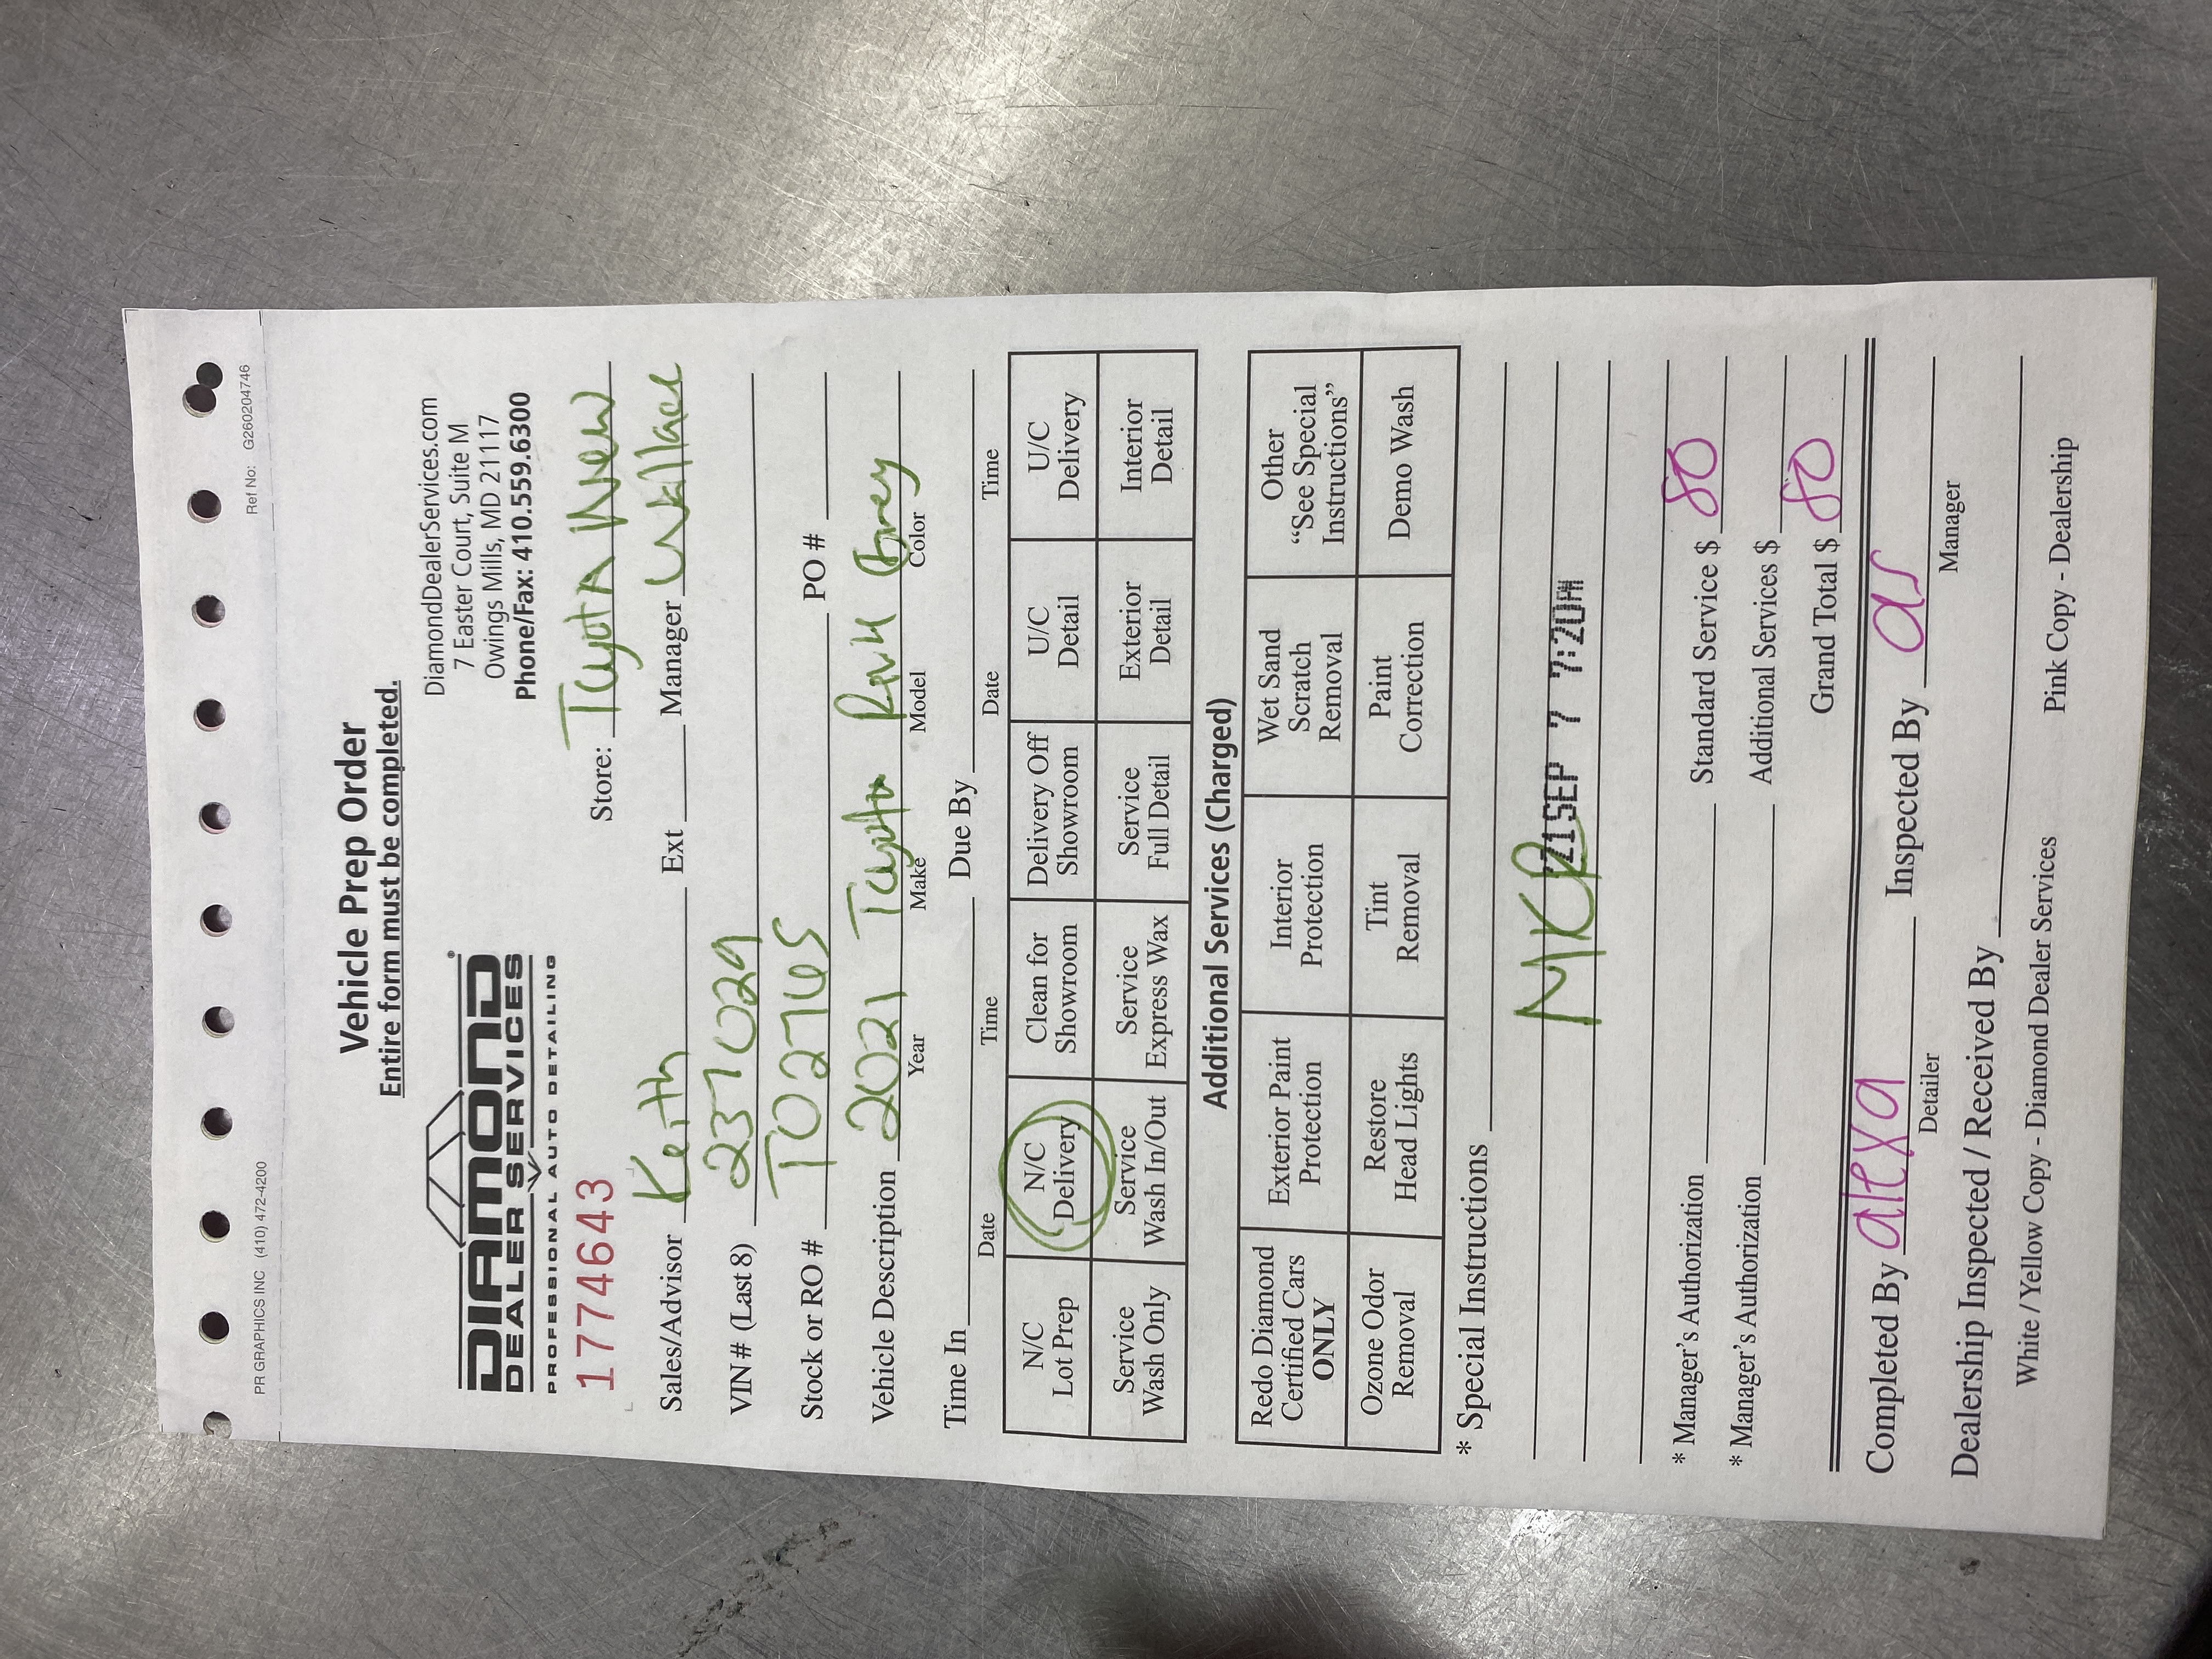 PR GRAPHICS INC (410) 472-4200 Ref No: G260204746
Vehicle Prep Order
Entire form must be completed.
DIAMOND®
DEALER SERVICES
PROFESSIONAL AUTO DETAILING
DiamondDealerServices.com
7 Easter Court, Suite M
Owings Mills, MD 21117
Phone/Fax: 410.559.6300
1774643
Store: Toyota New
Sales/Advisor Keith Ext Manager Wallace
VIN # (Last 8) 237029
Stock or RO # T02765 PO #
Vehicle Description 2021 Toyota Rav4 Grey
Year Make Model Color
Time In Due By
Date Time Date Time
N/C Lot Prep N/C Delivery Clean for Showroom Delivery Off Showroom U/C Detail U/C Delivery
Service Wash Only Service Wash In/Out Service Express Wax Service Full Detail Exterior Detail Interior Detail
Additional Services (Charged)
Redo Diamond Certified Cars ONLY Exterior Paint Protection Interior Protection Wet Sand Scratch Removal Other "See Special Instructions"
Ozone Odor Removal Restore Head Lights Tint Removal Paint Correction Demo Wash
* Special Instructions
MKP '21SEP 7 7:20AM
* Manager's Authorization Standard Service $ 80
* Manager's Authorization Additional Services $
Grand Total $ 80
Completed By alexa Inspected By
Detailer Manager
Dealership Inspected / Received By
White / Yellow Copy - Diamond Dealer Services Pink Copy - Dealership